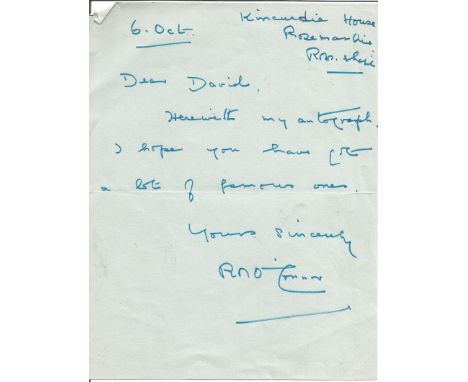 6. Oct.
Kincurdie House
Rosemarkie
Ross.shire
Dear David.
Herewith my autograph.
I hope you have got
a lot of famous ones.
Yours sincerely
R N O'Connor